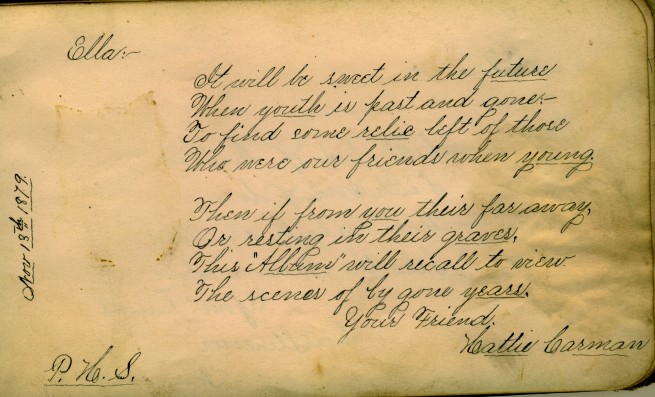 Ella:-
It will be sweet in the future
When youth is past and gone:-
To find some relic left of those
Who were our friends when young.
Then if from you their far away,
Or resting in their graves,
This "Album" will recall to view
The scenes of by gone years.
Your Friend,
Hattie Carman
Nov 13th 1879.
P. H. S.